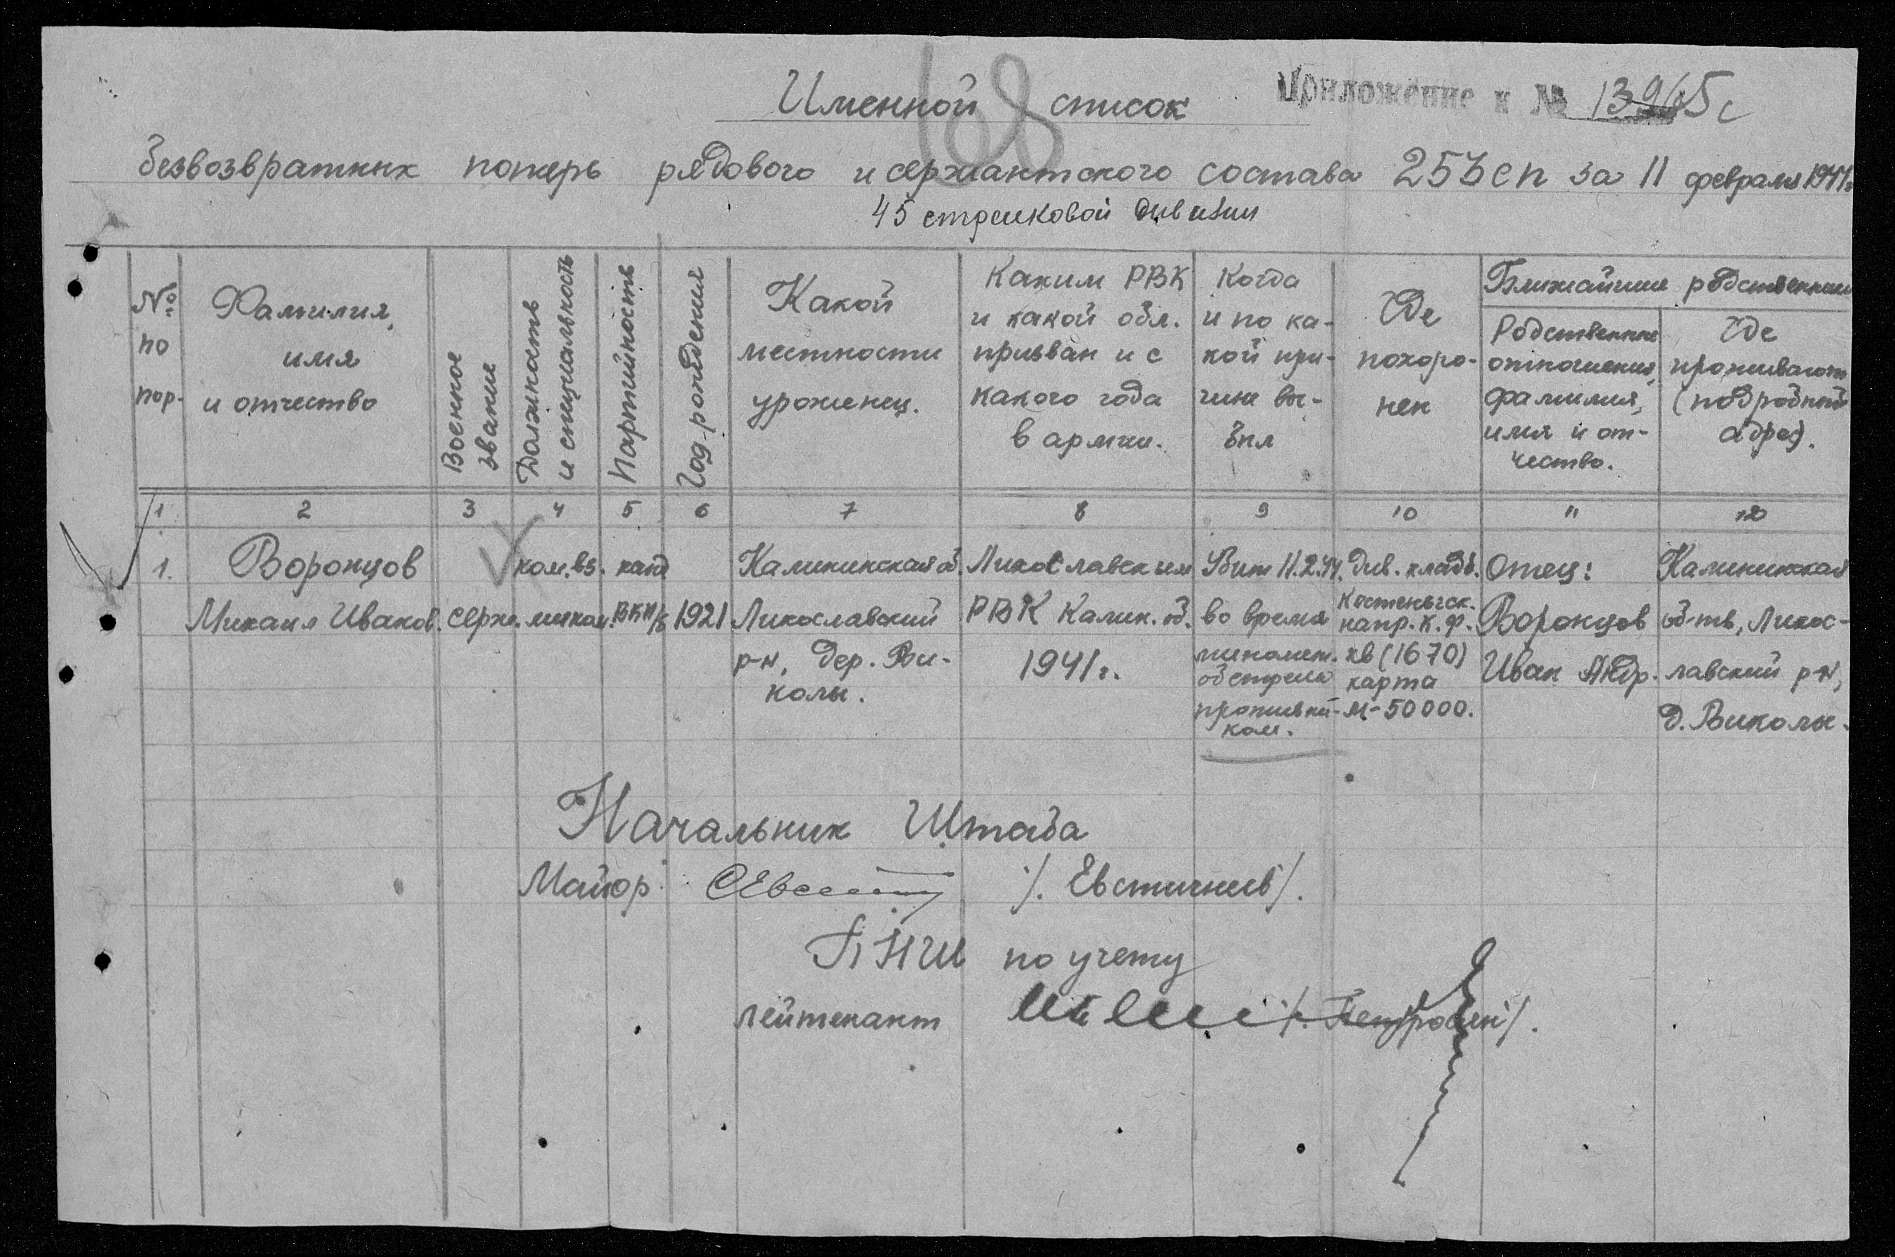 68
Именной список
Приложение к № 13965с
безвозвратных потерь рядового и сержантского состава 253 сп за 11 февраля 1944г.
45 стрелковой дивизии
№ по пор.
Фамилия, имя и отчество
Военное звание
Должность и специальность
Партийность
Год рождения
Какой местности уроженец.
Каким РВК и какой обл. призван и с какого года в армии.
Когда и по какой причине выбыл
Где похоронен
Ближайшие родственники
Родственные отношения, фамилия, имя и отчество.
Где проживают (подробный адрес).
1 2 3 4 5 6 7 8 9 10 11 12
1.
Воронцов
Михаил Иванов.
серж.
ком.вз.
мином.
канд
ВКП/б
1921
Калининская об.
Лихославский
р-н, дер. Ви-
колы.
Лихославским
РВК Калин. об.
1941г.
Убит 11.2.44.
во время
миномет.
обстрела
противни-
ком.
Див. кладб.
Кестеньгск.
напр. К.Ф.
кв (1670)
карта
М-50000.
Отец:
Воронцов
Иван Андр.
Калининская
об-ть, Лихос-
лавский р-н,
д. Виколы.
Начальник Штаба
Майор /. Евстигнеев/.
ПНШ по учету
лейтенант